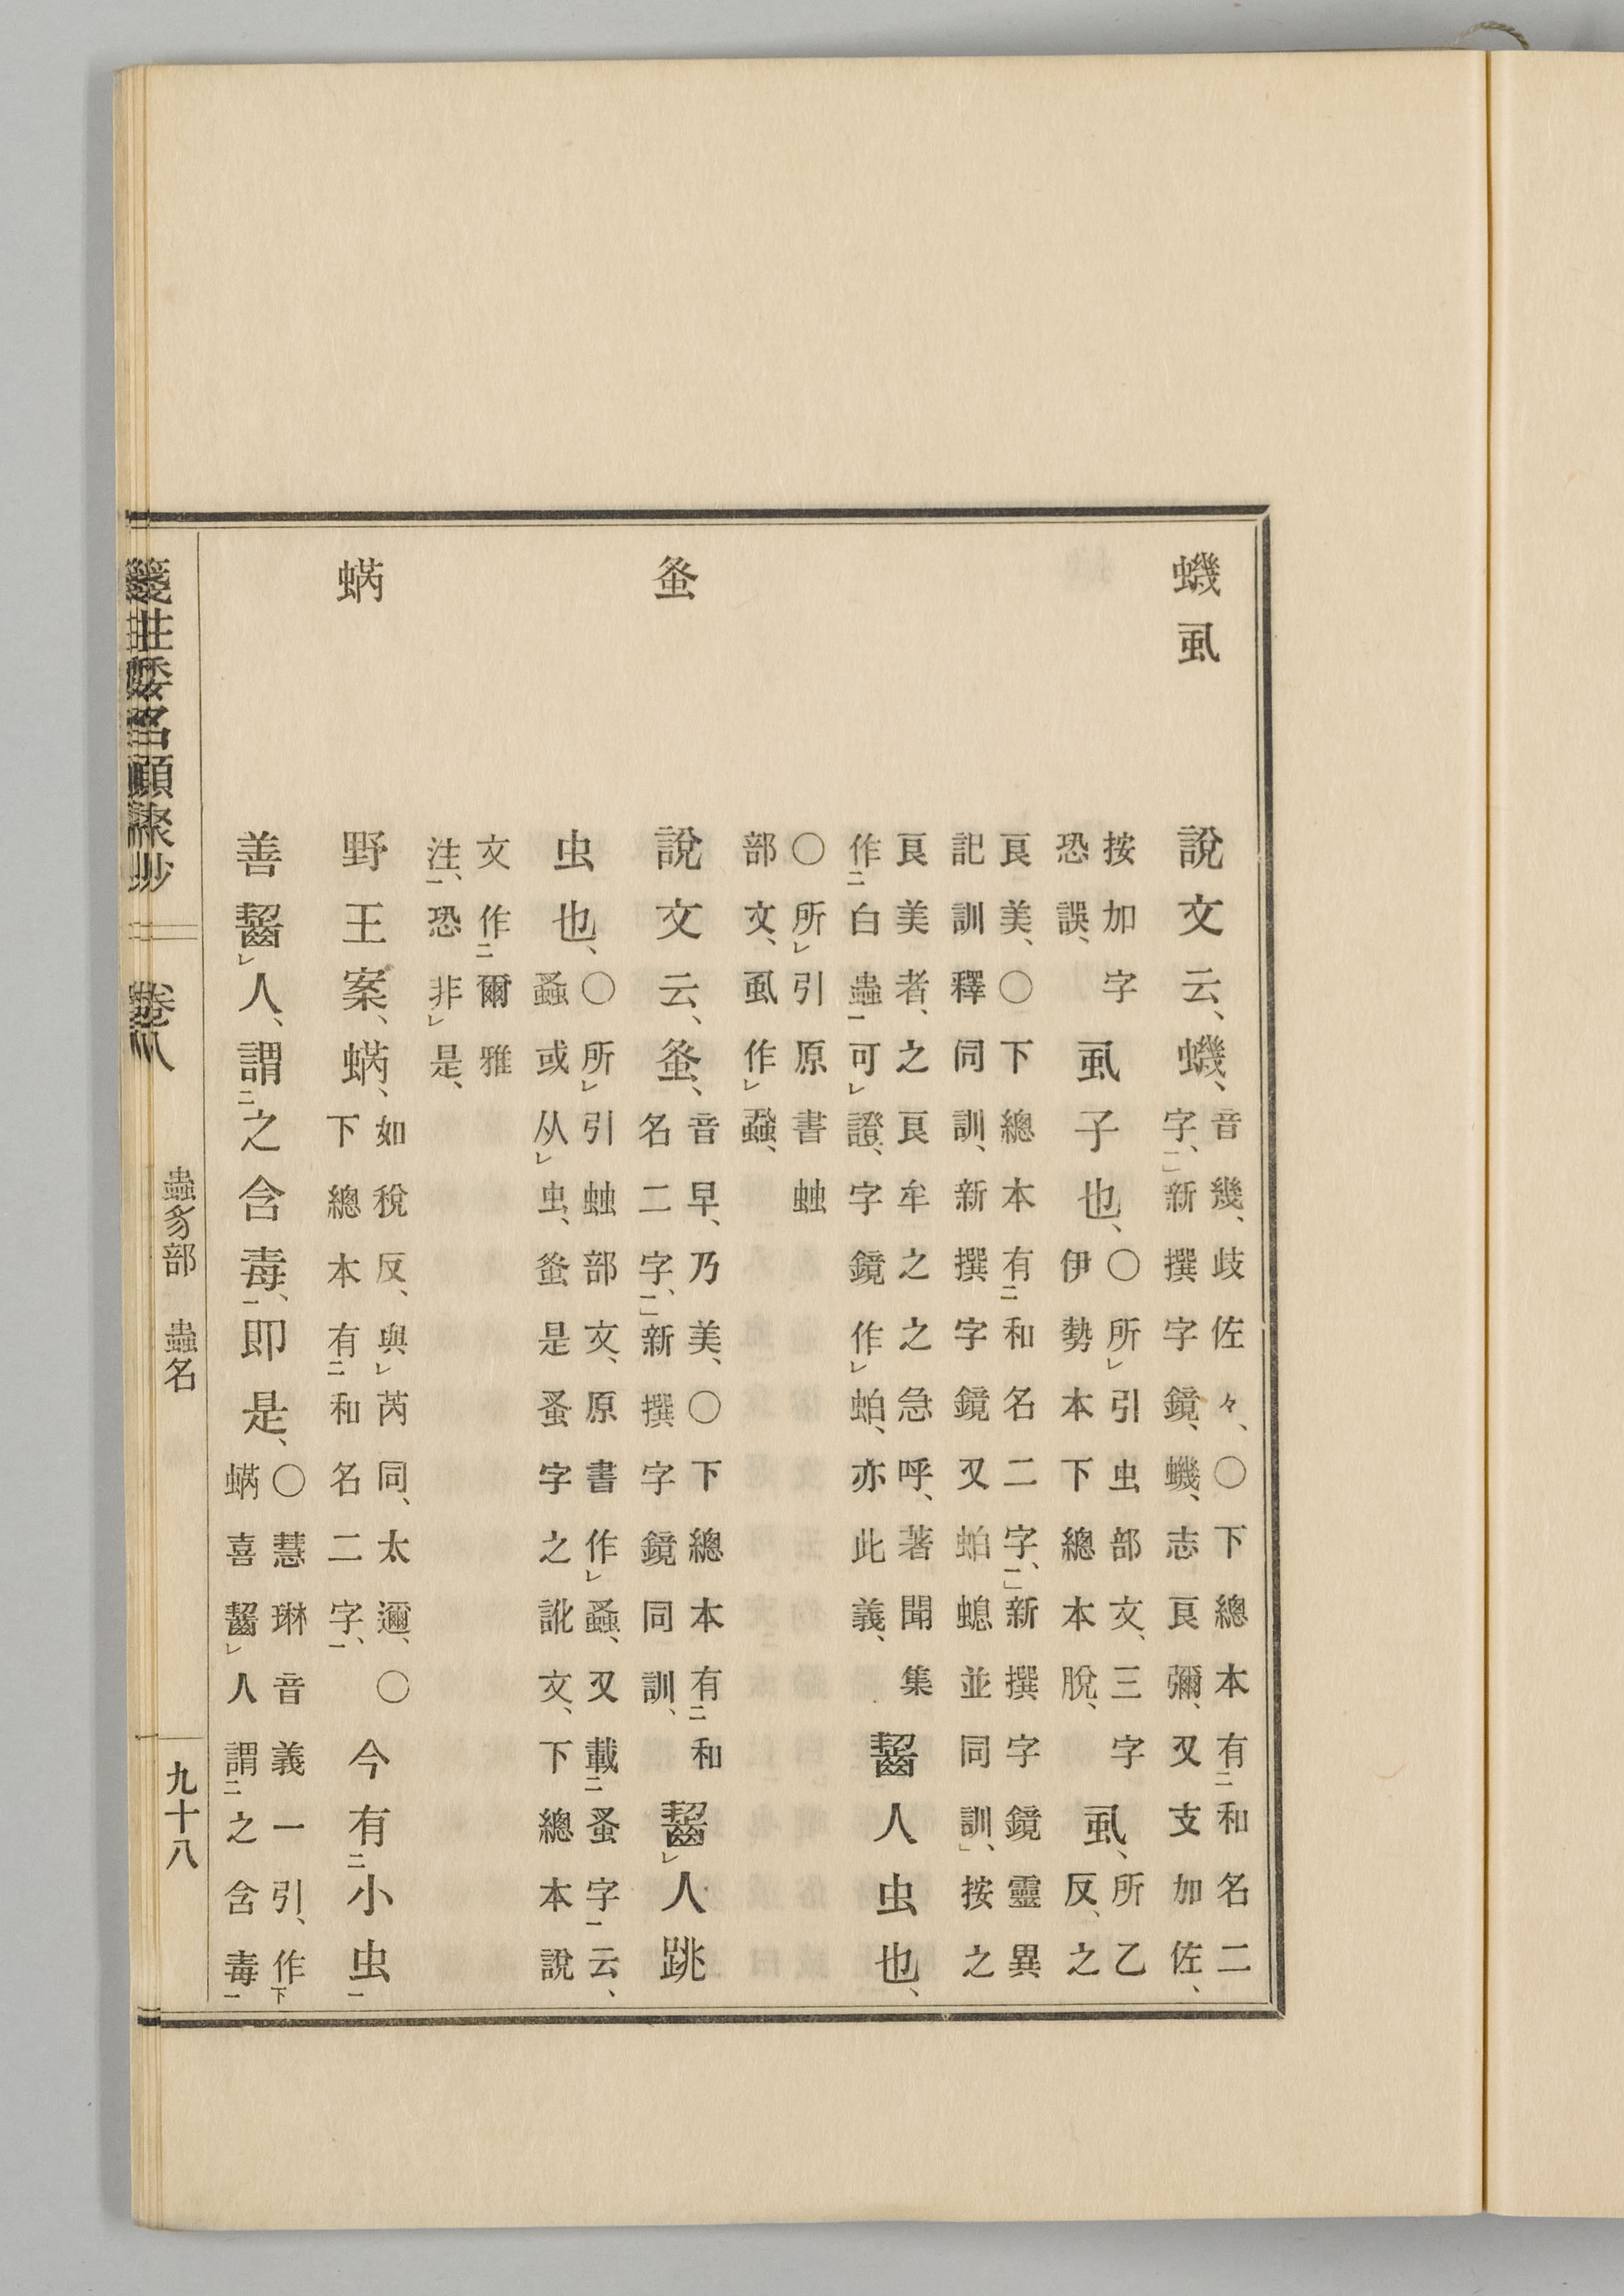 蟣虱
說文云、蟣、
音幾、歧佐々、○下總本有㆓和名二
字、㆒新撰字鏡、蟣、志良彌、又支加佐、
按加字
恐誤、
虱子也、
○所㆑引虫部文、三字
伊勢本下總本脫、
虱、
所乙
反、之
良美、○下總本有㆓和名二字、㆒新撰字鏡靈異
記訓釋同訓、新撰字鏡又蛨螅並同訓、按之
良美者、之良牟之之急呼、著聞集
作㆓白蟲㆒可㆑證、字鏡作㆑蛨、亦此義、
齧人虫也、
○所㆑引原書䖵
部文、虱作㆑蝨、
蚤
說文云、蚤、
音早、乃美、○下總本有㆓和
名二字、㆒新撰字鏡同訓、
齧㆑人跳
虫也、
○所㆑引䖵部文、原書作㆑䗢、又載㆓蚤字㆒云、
䗢或从㆑虫、蚤是蚤字之訛文、下總本說
文作㆓爾雅
注㆒、恐非㆑是、
蜹
野王案、蜹、
如稅反、與㆑芮同、太邇、○
下總本有㆓和名二字㆒、
今有㆓小虫㆒
善齧㆑人、謂㆓之含毒㆒、即是、
○慧琳音義一引、作㆘
蜹喜齧㆑人謂㆓之含毒㆒
箋注倭名類聚抄 卷八 蟲豸部 蟲名 九十八